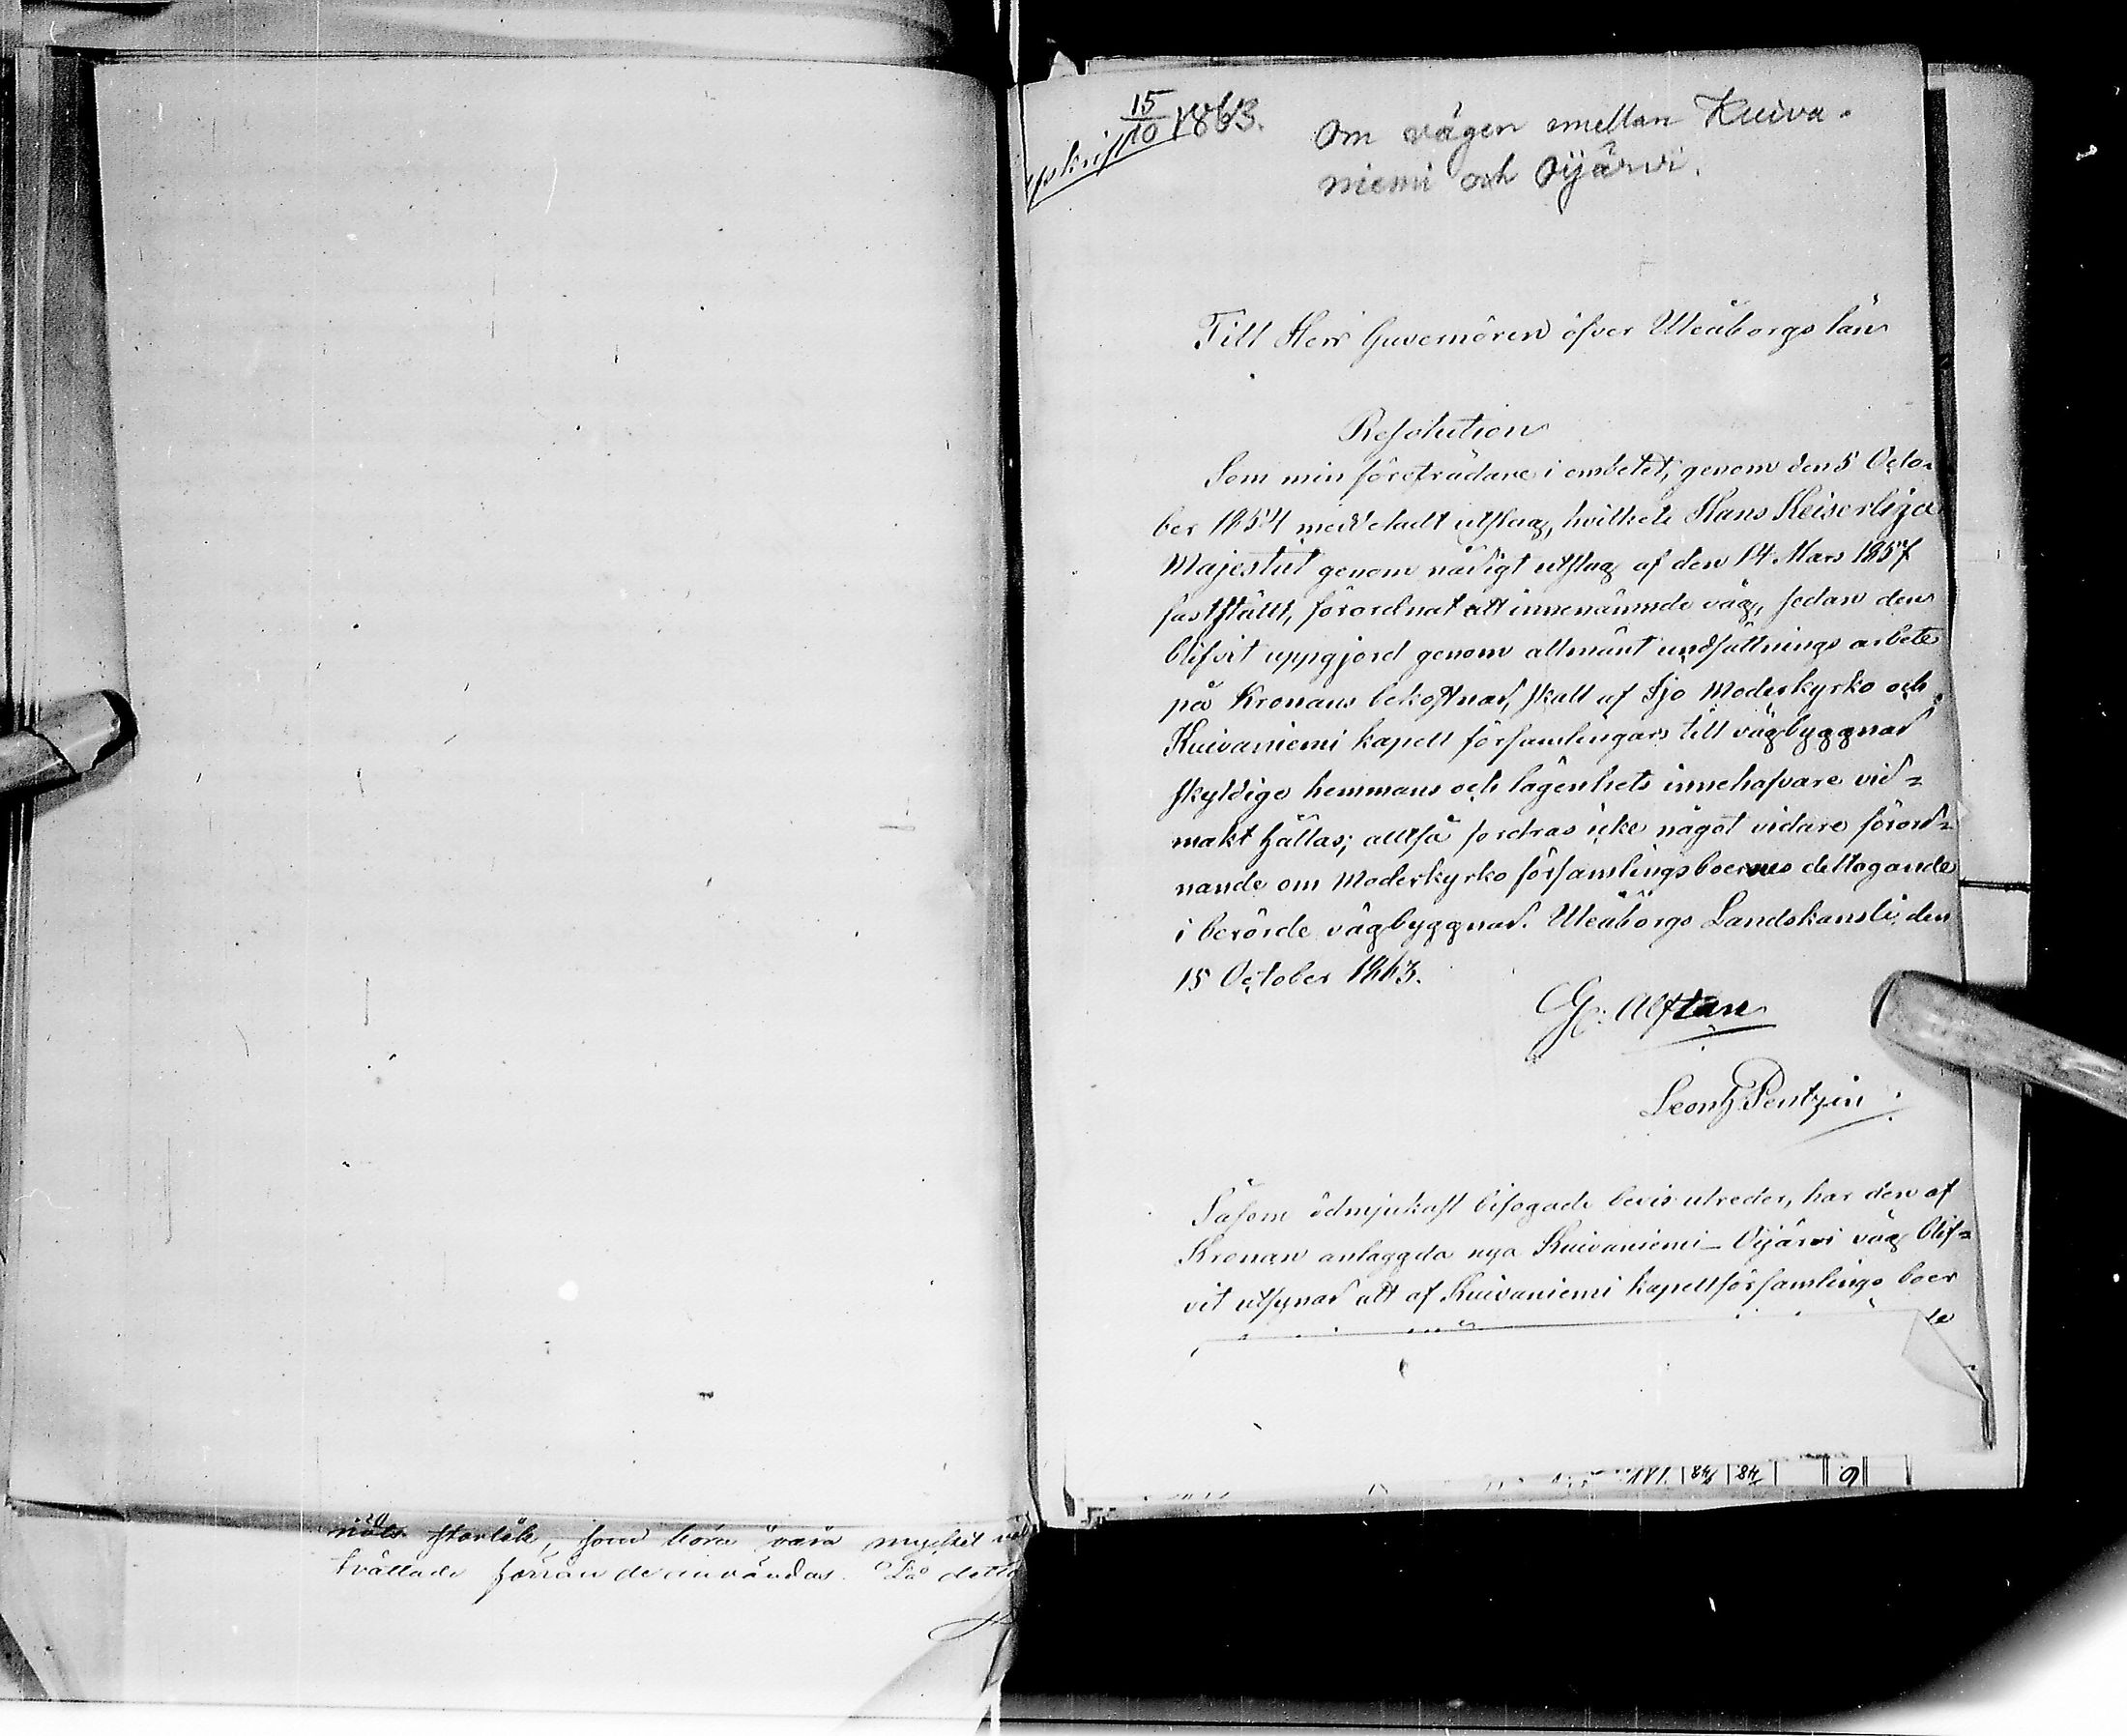 15/10 1863.
Om vägen emellan Kuiva-
niemi och Oijärvi.
Till Herr Guvernören öfver Uleåborgs län
Resolution
Som min företrädare i embetet, genom den 5 Octo-
ber 1854 meddeladt utslag, hvilket Hans Keiserliga
Majestät genom nådigt utslag af den 14 Mars 1857
fastställt, förordnat att innenämnde väg, sedan den
blifvit uppgjord genom allmänt undsättnings arbete
på Kronans bekostnad, skall af Ijo Moderkyrko och
Kuivaniemi kapell församlingars till vägbyggnad
skyldige hemmans och lägenhets innehafvare vid-
makt hållas; alltså fordras icke något vidare förord-
nande om Moderkyrko församlingsboernes deltagande
i berörde vägbyggnad. Uleåborgs Landskansli den
15 October 1863.
G: Alftan
Leonh Pentzin
Såsom ödmjukast bifogade bevis utreder, har den af
Kronan anlaggda nya Kuivaniemi-Oijärvi väg blif-
vit utsynad att af Kuivaniemi kapellförsamlings boer
te
181 | 84 | 84 | 9
storlek, som böra vara mycket väl
tvättade förrän de användas. Då detta